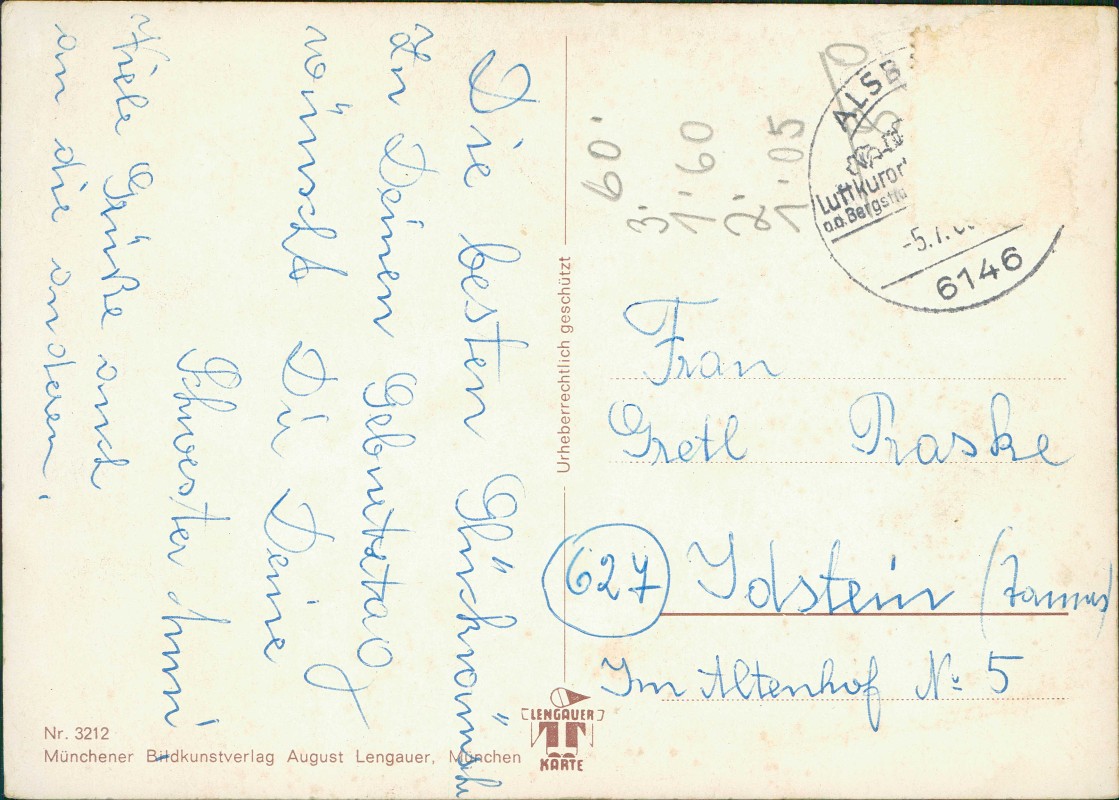 Die besten Glückwünsche
zu Deinen Geburtstag
wünscht Dir Deine
Schwester Anni
Viele Grüße auch
an die anderen.
60.
3. 1.60
2. 1.05
ALSB
Luftkuror
a.d. Bergstra
-5.7.6
6146
Urheberrechtlich geschützt
Frau
Gretl Praske
627 Idstein (Taunus)
Im Altenhof No 5
Nr. 3212
Münchener Bildkunstverlag August Lengauer, München
LENGAUER
KARTE